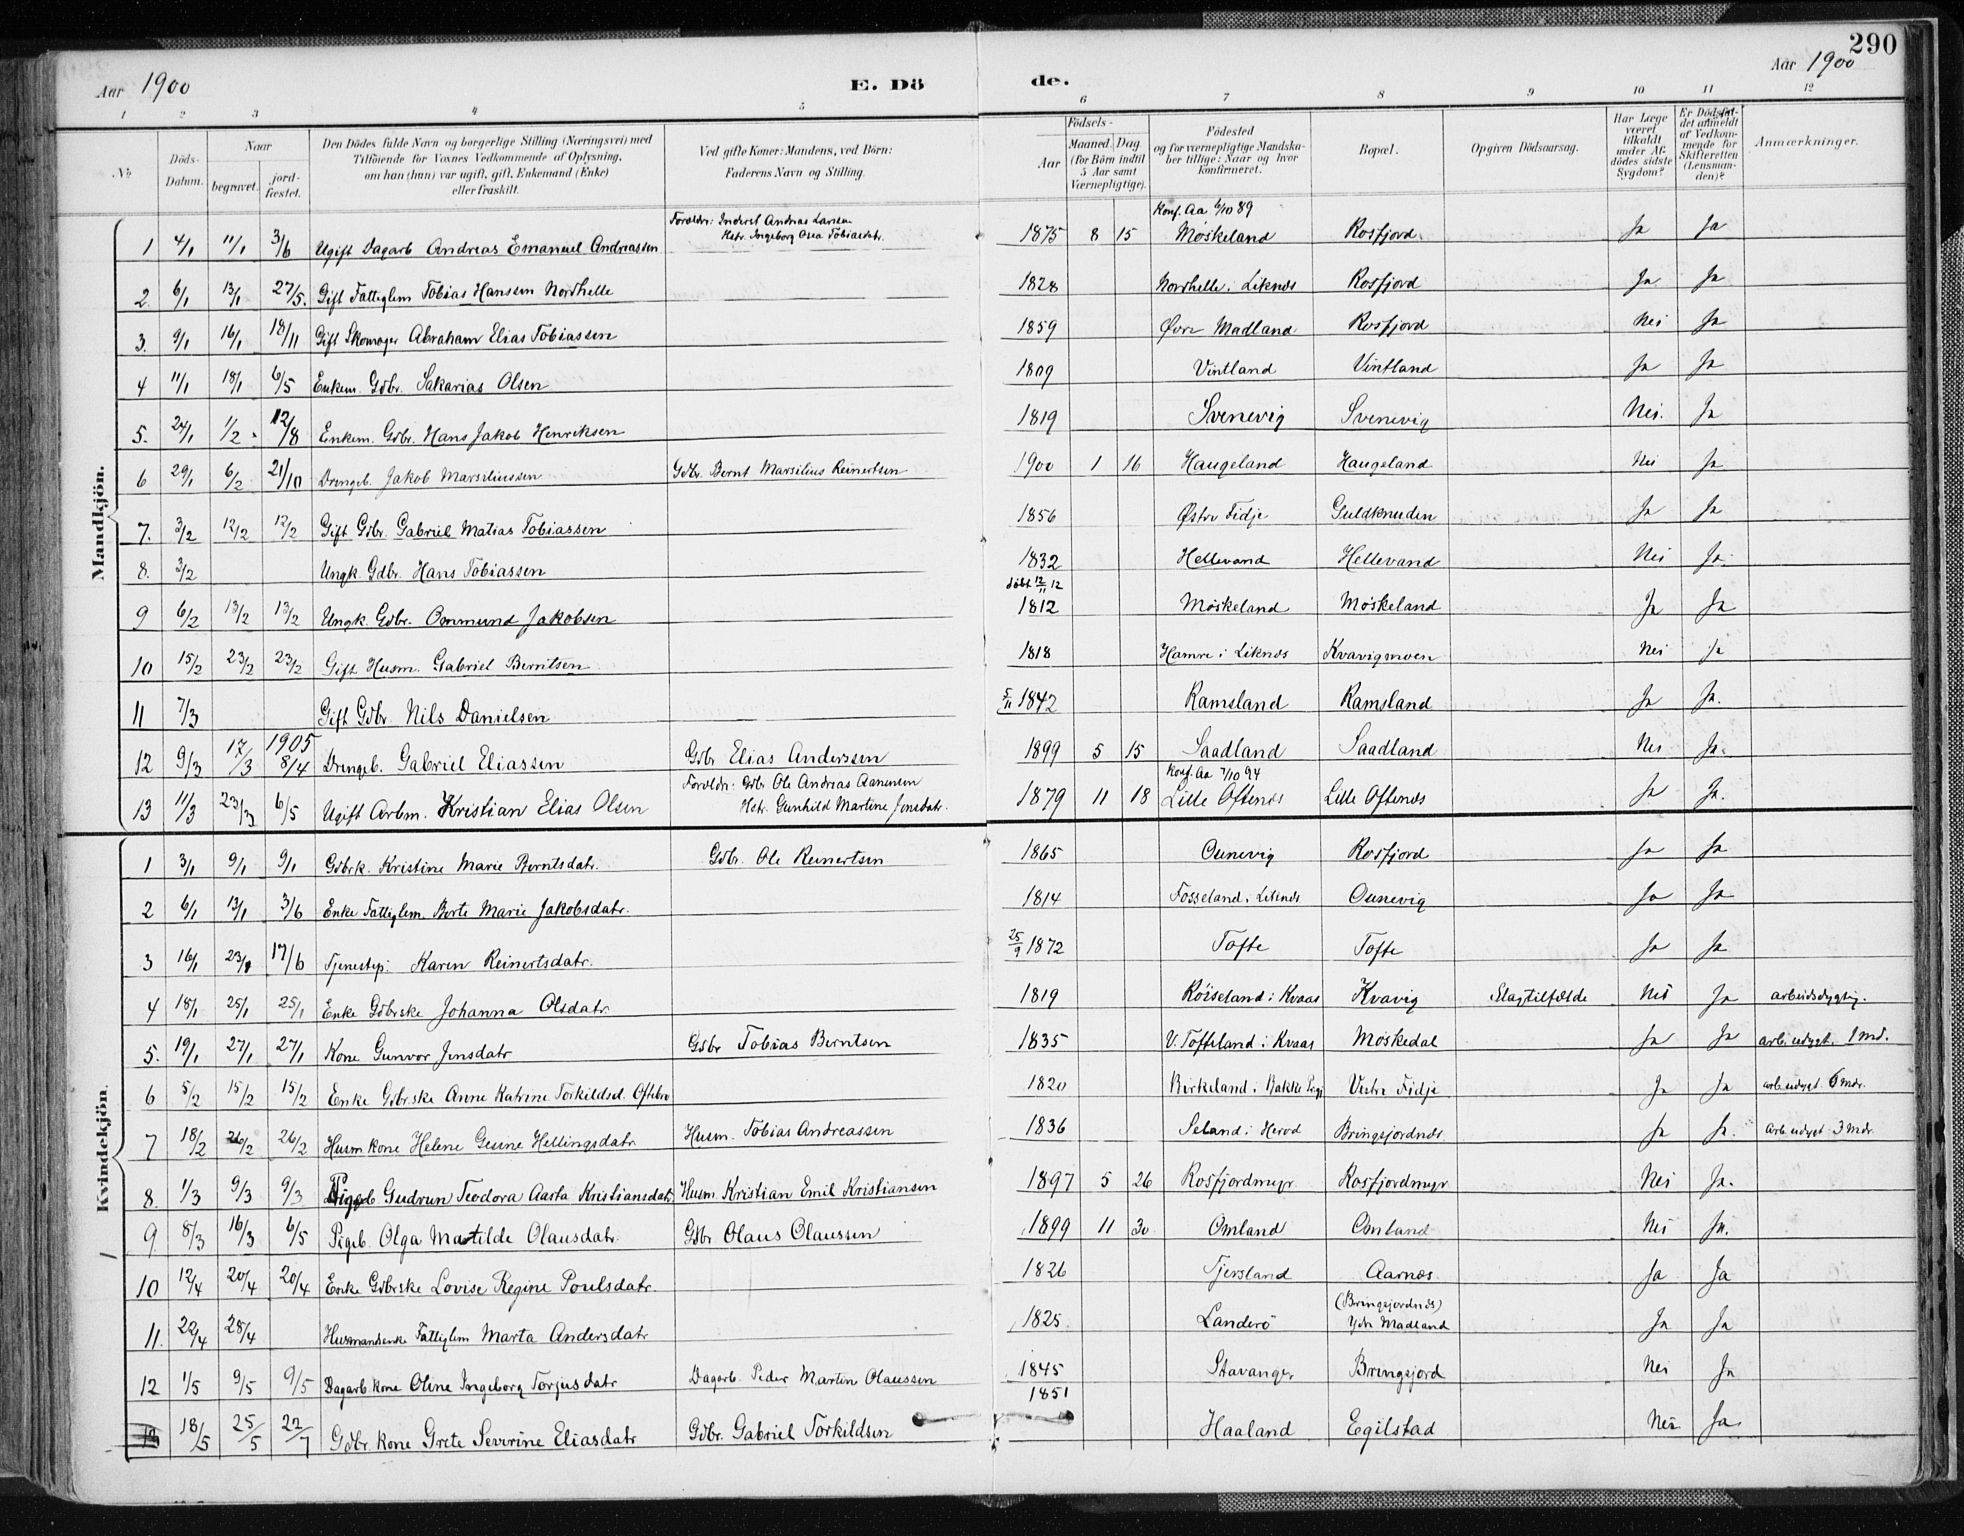 290
Aar 1900
E. Dö
de.
Aar 1900
1 2 3 4 5 6 7 8 9 10 11 12
No
Döds-Datum.
Naar
begravet.
jord-fæstet.
Den Dödes fulde Navn og borgerlige Stilling (Næringsvei) med
Tilföiende for Voxnes Vedkommende af Oplysning,
om han (hun) var ugift, gift, Enkemand (Enke)
eller fraskilt.
Ved gifte Koner: Mandens, ved Börn:
Faderens Navn og Stilling.
Födsels-
Aar
Maaned. Dag.
(for Börn indtil
5 Aar samt
Værnepligtige).
Födested
og for værnepligtige Mandska-
ber tillige: Naar og hvor
konfirmeret.
Bopæl.
Opgiven Dödsaarsag.
Har Læge
været
tilkaldt
under Af-
dödes sidste
Sygdom?
Er Dödsfal-
det anmeldt
af Vedkom-
mende for
Skifteretten
(Lensman-
den)?
Anmærkninger.
Mandkjön.
Foreldr: Inderst Andreas Larsen Konf. Aa 6/10 89
Hstr. Ingeborg Asea Tobiasdatr.
1 4/1 11/1 3/6 Ugift Dagarb Andreas Emanuel Andreassen 1875 8 15 Møskeland Rosfjord Ja Ja
2 6/1 13/1 27/5. Gift Fattiglem Tobias Hansen Nordhelle 1828 Nordhelle i Liknes Rosfjord Ja Ja
3. 9/1 16/1 18/11 Gift Skomager Abraham Elias Tobiassen 1859 Øvre Madland Rosfjord Nei Ja
4 11/1 18/1 6/5 Enkem. Gdbr. Sakarias Olsen 1809 Vintland Vintland Ja Ja
5. 24/1 1/2 12/8 Enkem. Gdbr. Hans Jakob Henriksen 1819 Svenevig Svenevig Nei. Ja
6 29/1 6/2 21/10 Drengeb. Jakob Marsiliussen Gdbr. Bernt Marsilius Reinertsen 1900 1 16 Haugeland Haugeland Nei Ja
7. 3/2 12/2 12/2 Gift Gdbr. Gabriel Matias Tobiassen 1856 Østre Fidje Guldknuden Ja Ja
8. 3/2 Ungk. Gdbr. Hans Tobiassen 1832 Hellevand Hellevand Nei Ja
døbt 12/11 12
9 6/2 13/2 13/2 Ungk. Gdbr. Ommund Jakobsen 1812 Møskeland Møskeland Ja Ja
10 15/2 23/2 23/2 Gift Husm. Gabriel Berntsen 1818 Hamre i Liknes Kvavigmoen Nei Ja
11 7/3 Gift Gdbr. Nils Danielsen 5/11 1842 Ramsland Ramsland Ja Ja.
12 9/3 17/3 1905 8/4 Drengeb. Gabriel Eliassen Gdbr Elias Anderssen 1899 5 15 Saadland Saadland Nei Ja.
Foreldr: Gdbr Ole Andreas Aanensen Konf. Aa 7/10 94
Hstr. Gunhild Martine Jonsdatr.
13 11/3 23/3 6/5 Ugift Arbm. Kristian Elias Olsen 1879 11 18 Lille Oftenes Lille Oftenes Ja Ja.
Kvindekjön.
1 3/1 9/1 9/1 Gdbrk. Kristine Marie Berntsdatr. Gdbr. Ole Reinertsen 1865 Ounevig Rosfjord Ja Ja
2 6/1 13/1 3/6 Enke Fattiglem. Berte Marie Jakobsdatr. 1814 Fosseland i Liknes Ounevig Ja Ja
3 16/1 23/1 17/6 Tjenestep: Karen Reinertsdatr. 25/9 1872 Tofte Tofte Ja Ja
4 18/1 25/1 25/1 Enke Gdbrske Johanna Olsdatr. 1819 Röiseland i Kvaas Kvavig Slagtilfælde Nei Ja arbeidsdygtig.
5. 19/1 27/1 27/1 Kone Gunvor Jensdatr Gdbr Tobias Berntsen 1835 V. Tofteland i Kvaas Moskedal Ja Ja arb. udygt. 1 md.
6 5/2 15/2 15/2 Enke Gdbr.ske Anne Katrine Torkildsd. Oftebro 1820 Birkeland i Bakke Vestre Fidje Ja Ja arb. udygt. 6 mdr.
7 18/2 26/2 26/2 Husm kone Helene Gesine Hellingsdatr. Husm. Tobias Andreassen 1836 Seland i Herod Bringsjordnes Ja Ja. arb. udygt 3 mdr.
8. 1/3 9/3 9/3 Pigeb Gudrun Teodora Aasta Kristiansdatr. Husm. Kristian Emil Kristiansen 1897 5 26 Rosfjordmyr Rosfjordmyr Nei Ja.
9. 8/3 16/3 6/5 Pigeb. Olga Matilde Olausdatr. Gdbr Olaus Olaussen 1899 11 30 Omland Omland Nei Ja.
10 12/4 20/4 20/4 Enke Gdbrske Lovise Regine Poulsdatr. 1826 Tjersland Aarnes Ja Ja
11. 22/4 28/4 Husmandsenke Fattiglem Marta Andersdatr 1825 Landerö (Bringsjordnes) Ydr Madland Ja Ja
12 1/5 9/5 9/5 Dagarb. kone Oline Ingeborg Torjusdatr Dagarb. Peder Martin Olaussen 1845 Stavanger Bringsjord Nei Ja
1851
13 18/5 25/5 22/7 Gdbr. kone Grete Severine Eliasdatr Gdbr. Gabriel Torkildsen Haaland Egilstad Nei Ja.